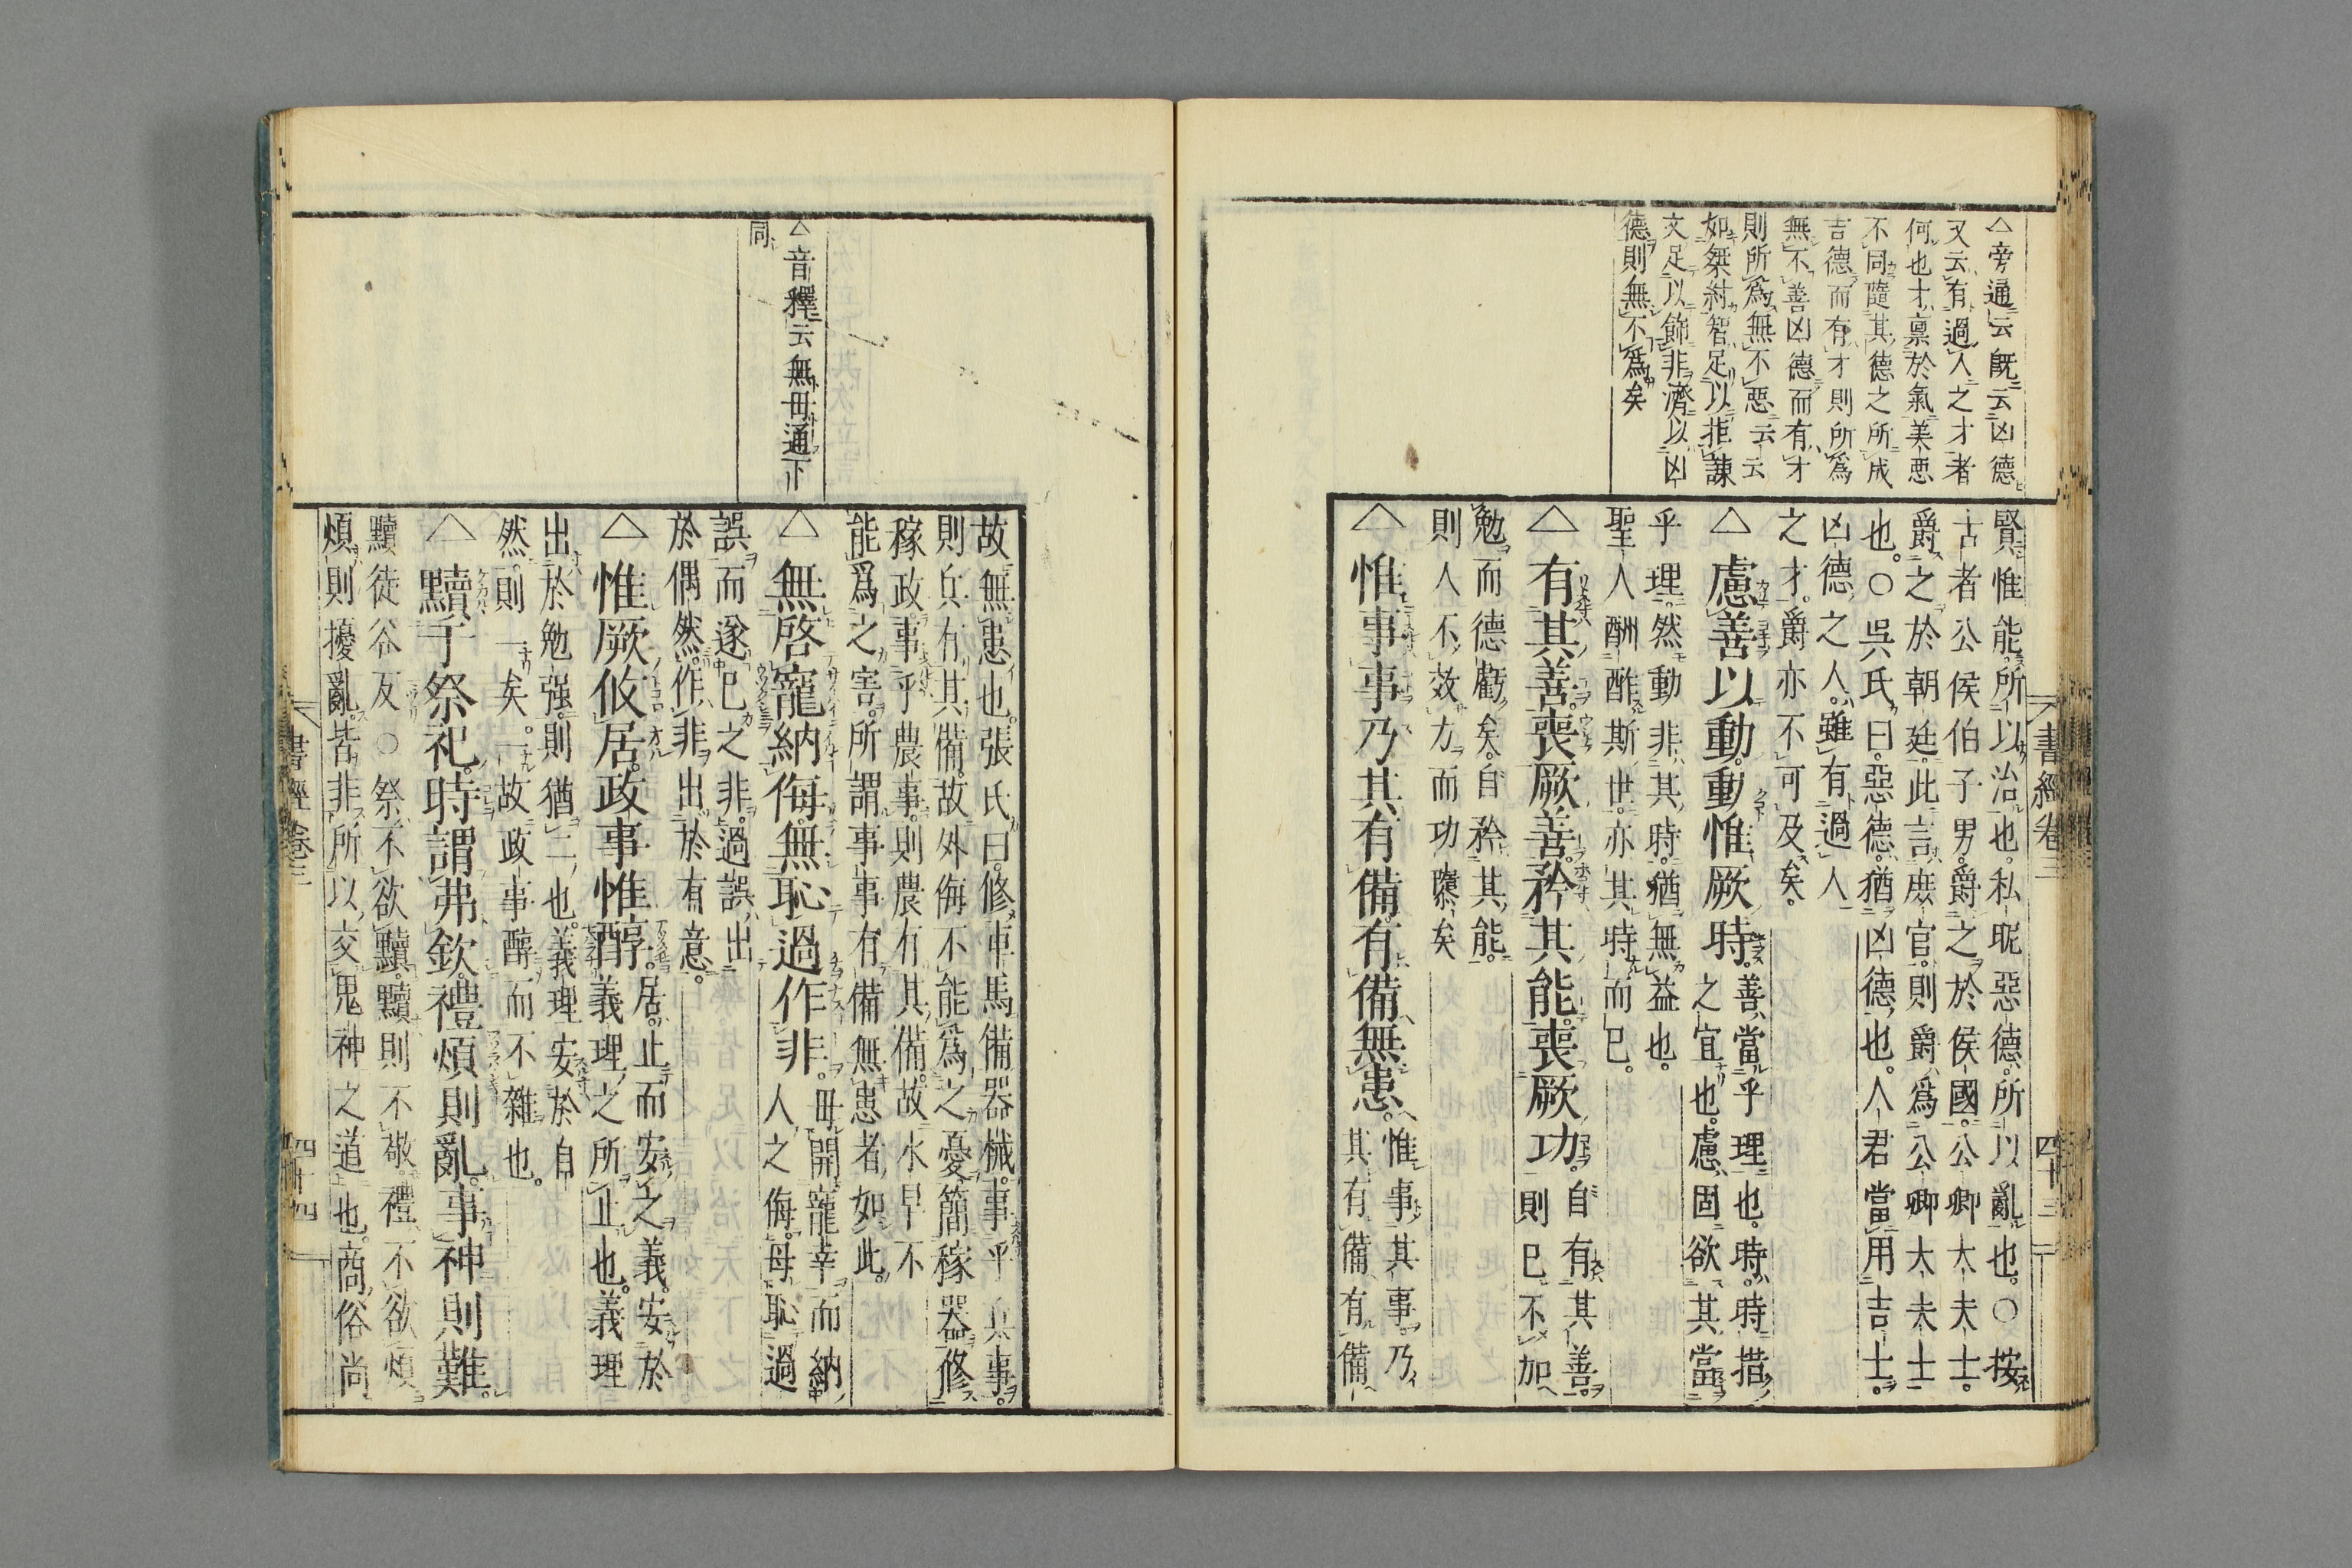 △旁通云既云凶德
又云有過人之才者
何也才稟於氣美惡
不同隨其德之所成
吉德而有才則所為
無不善凶德而有才
則所為無不惡云云
如桀紂智足以拒諫
文足以飾非濟以凶
德則無不為矣
書經卷三
四十三
賢惟能所以治也。私昵惡德。所以亂也。○按
古者公侯伯子男。爵之於侯國。公卿大夫士。
爵之於朝廷。此言庶官。則爵為公卿大夫士
也。○吳氏曰。惡德。猶凶德也。人君當用吉士。
凶德之人。雖有過人
之才。爵亦不可及矣。
△慮善以動。動惟厥時。
善。當乎理也。時。時措
之宜也。慮固欲其當
乎理。然動非其時。猶無益也。
聖人酬酢斯世。亦其時而已。
△有其善。喪厥善。矜其能。喪厥功。
自有其善。
則已不加
勉而德虧矣。自矜其能。
則人不效力而功隳矣
△惟事事。乃其有備。有備無患。
惟事其事。乃
其有備。有備
△音釋云無毋通下
同
故無患也。張氏曰。修車馬備器械。事乎兵事。
則兵有其備。故外侮不能為之憂。簡稼器。修
稼政。事乎農事。則農有其備。故水旱不
能為之害。所謂事事有備無患者。如此。
△無啓寵納侮。無恥過作非。
毋開寵幸而納
人之侮。毋恥過
誤而遂已之非。過誤。出
於偶然。作非。出於有意。
△惟厥攸居。政事惟醇。
居。止而安之義。安於
義理之所止也。義理
出於勉强。則猶二也。義理安於自
然。則一矣。一故政事醇而不雜也。
△黷于祭祀。時謂弗欽。禮煩則亂。事神則難。
黷徒谷反○祭不欲黷。黷則不敬。禮不欲煩
煩則擾亂。皆非所以交鬼神之道也。商俗尚
書經卷三
四十四